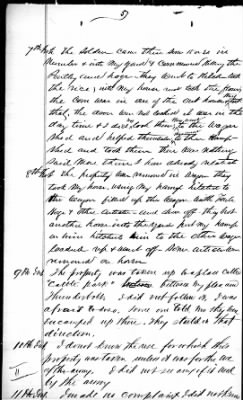 5)
7th Int. The soldiers came there some 15 or 20 in
number & into my yard & commenced killing the
poultry and hogs. they went to the barn and
the rice, into my house and took the flour,
the corn was in one of the out houses
that, the door was not locked it was in the
day time & I didn't see them
shed and helped themselves to the
shed and took them there was nothing
said more than I have already related
8th Int. the property was removed in wagons they
took my horse using my harness hitched to
the wagon filled up the wagon with
hogs & other articles and drove off. they had
another horse into the yard put my harness
on him hitched him to the other wagon
loaded up & went off. Some articles were
removed on horse.
9th Int. The property was taken up to a place called
Cattle park between my place and
Thunderbolt, I did not follow it, I was
afraid to do so. Some one told me they were
encamped up there. They started in that
direction.
10th Int. I do not know the use for which this
property was taken unless it was for the use
of the army. I did not see any of it used
by the army
11
11th Int. I made no complaint I did not know